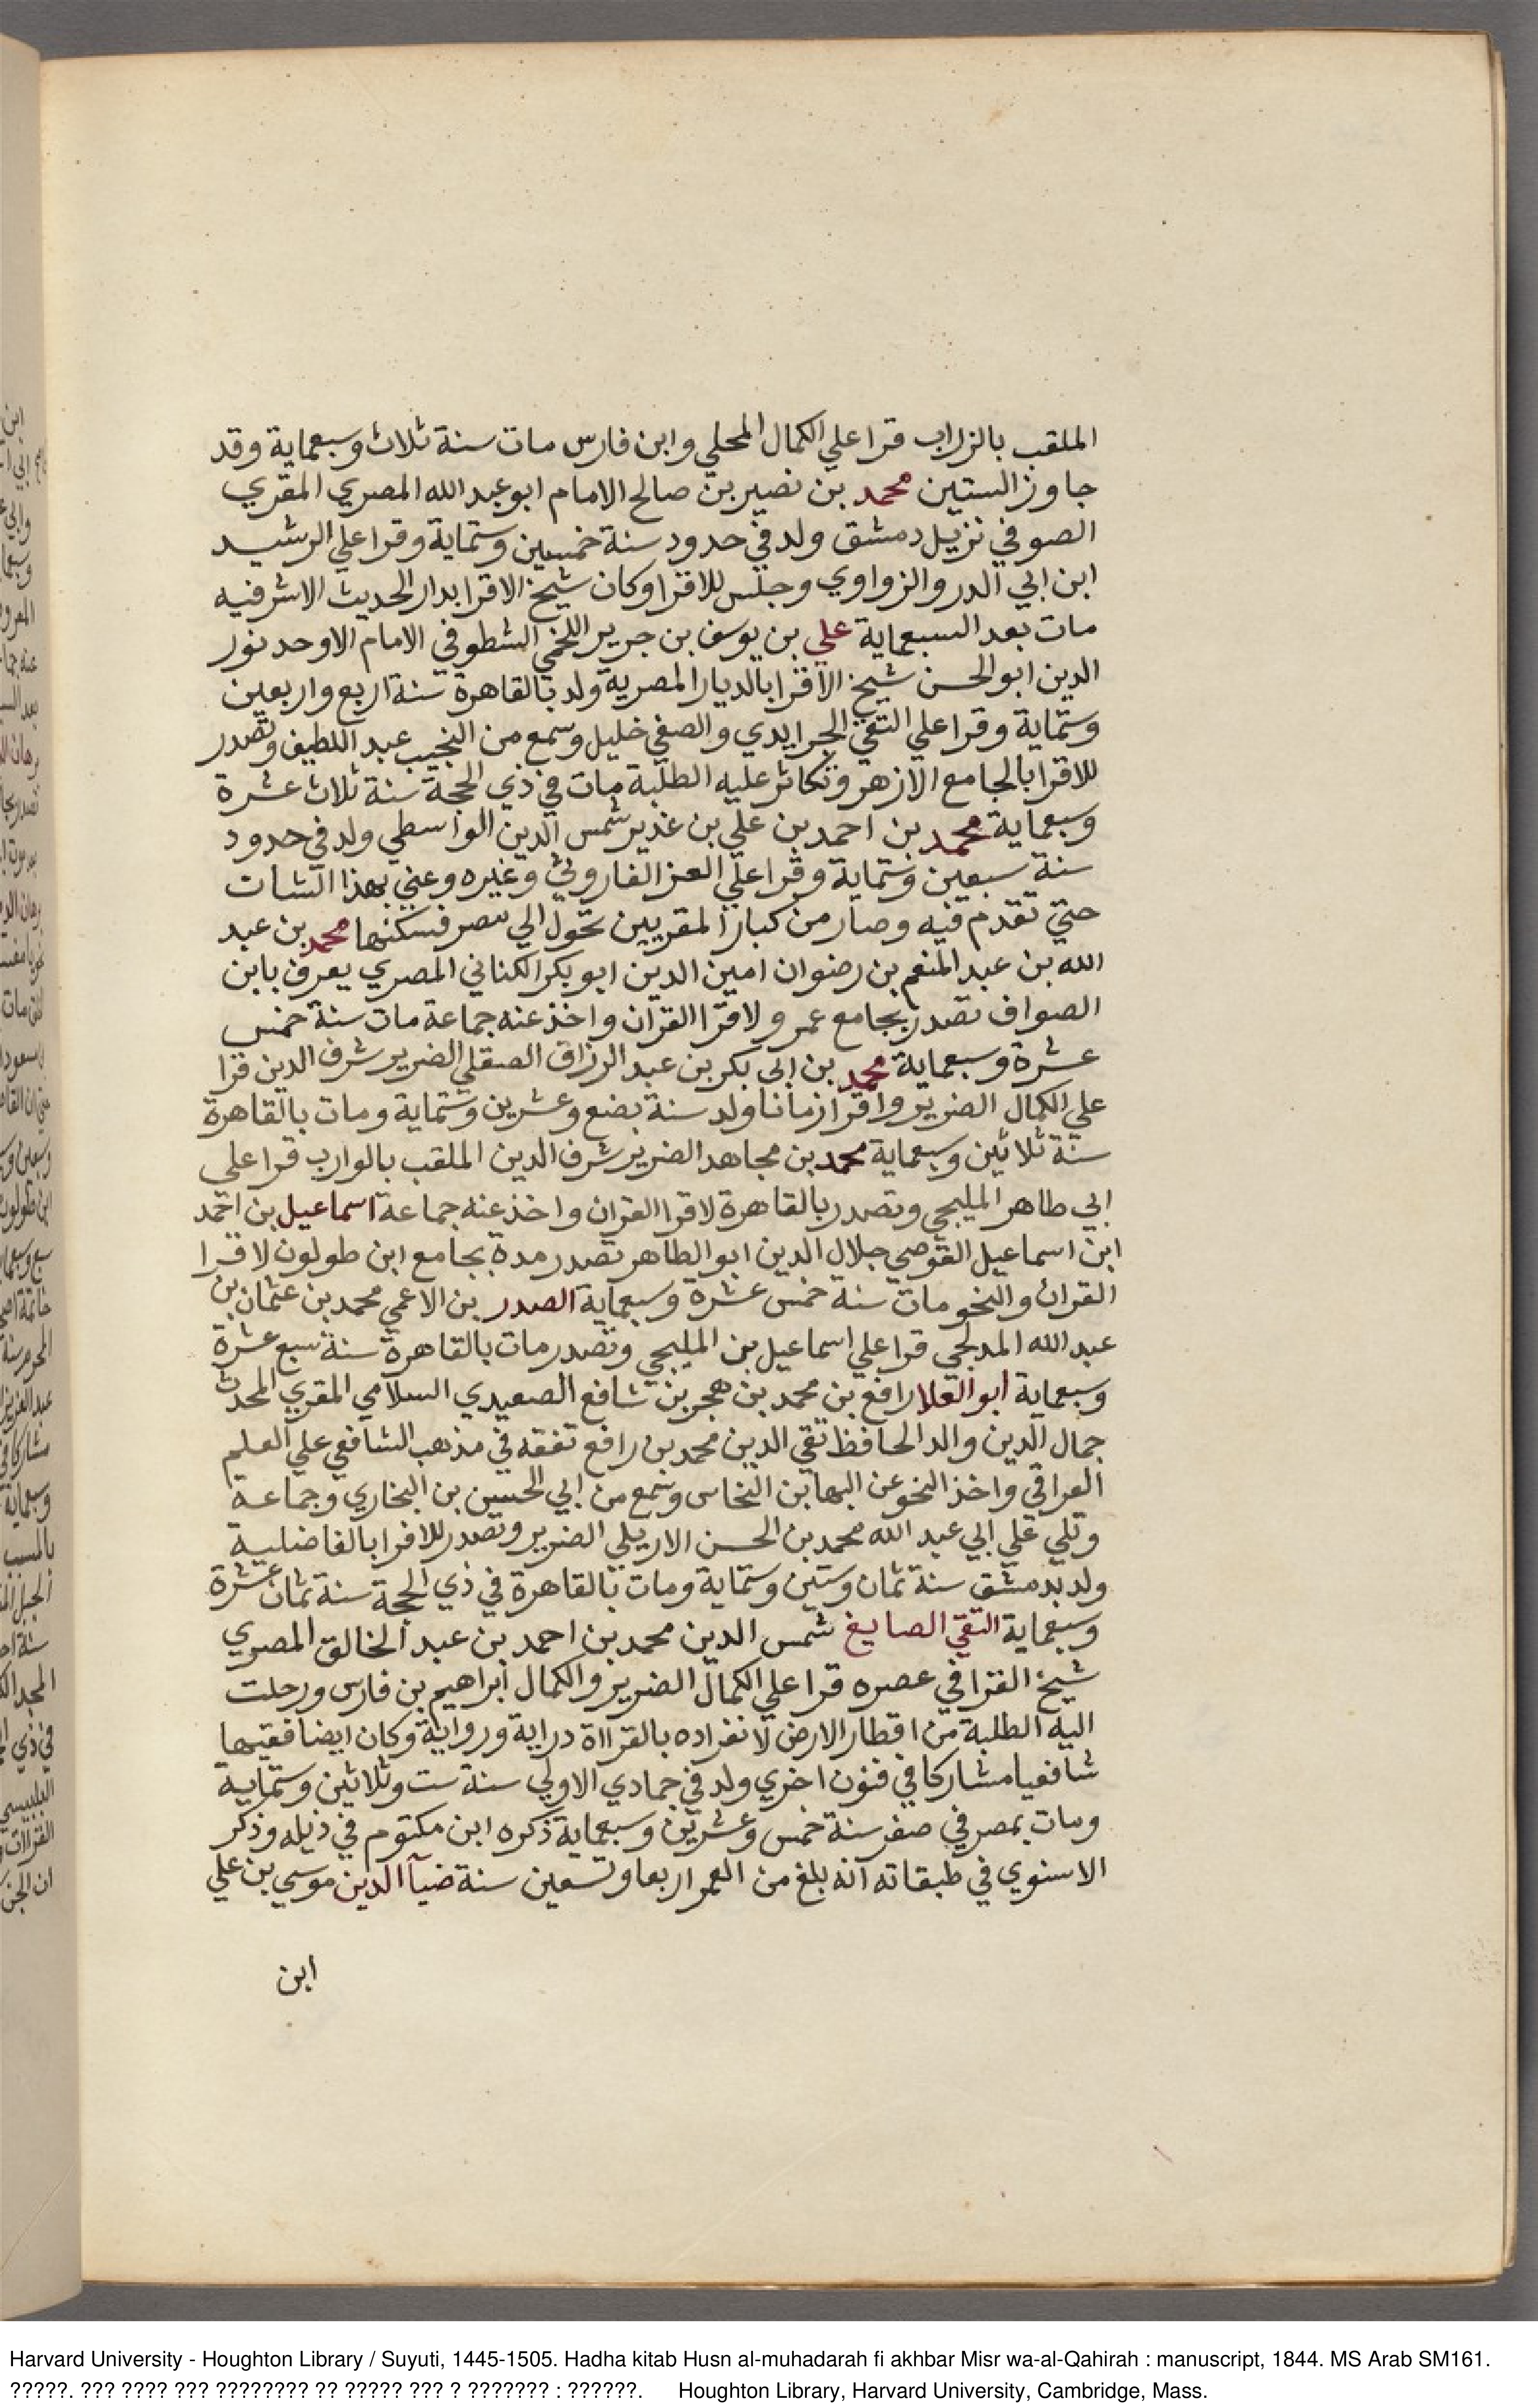 الملقب بالزراب قرا علي الكمال المحلي وابن فارس مات سنة ثلاث وسبعماية وقد
جاوز الستين محمد بن نصير بن صالح الامام ابو عبد الله المصري المقري
الصوفي نزيل دمشق ولد في حدود سنة خمسين وستماية وقرا علي الرشيد
ابن ابي الدر والزواوي وجلس للاقرا وكان شيخ الاقرا بدار الحديث الاشرفيه
مات بعد السبعماية علي بن يوسف بن جرير اللخمي الشطوفي الامام الاوحد نور
الدين ابو الحسن شيخ الاقرا بالديار المصرية ولد بالقاهرة سنة اربع واربعين
وستماية وقرا علي التقي الجرايدي والصفي خليل وسمع من النجيب عبد اللطيف وتصدر
للاقرا بالجامع الازهر وتكاثر عليه الطلبة مات في ذي الحجة سنة ثلاث عشرة
وسبعماية محمد بن احمد بن علي بن غدير شمس الدين الواسطي ولد في حدود
سنة سبعين وستماية وقرا علي العز الفاروثي وغيره وعني بهذا الشات
حتي تقدم فيه وصار من كبار المقريين تحول الي مصر فسكنها محمد بن عبد
الله بن عبد المنعم بن رضوان امين الدين ابو بكر الكناني المصري يعرف بابن
الصواف تصدر بجامع عمر ولاقرا القران واخذ عنه جماعة مات سنة خمس
عشرة وسبعماية محمد بن ابي بكر بن عبد الرزاق الصقلي الضرير شرف الدين قرا
علي الكمال الضرير واقرا زمانا ولد سنة بضع وعشرين وستماية ومات بالقاهرة
سنة ثلاثين وسبعماية محمد بن مجاهد الضرير شرف الدين الملقب بالوارب قرا علي
ابي طاهر المليجي وتصدر بالقاهرة لاقرا القران واخذ عنه جماعة اسماعيل بن احمد
ابن اسماعيل القوصي جلال الدين ابو الطاهر تصدر مدة بجامع ابن طولون لاقرا
القران والنحو مات سنة خمس عشرة وسبعماية الصدر بن الاعمي محمد بن عثمان بن
عبد الله المدلجي قرا علي اسماعيل بن المليجي وتصدر مات بالقاهرة سنة سبع عشرة
وسبعماية ابو العلا رافع بن محمد بن هجر بن شافع الصعيدي السلامي المقري المحدث
جمال الدين والد الحافظ تقي الدين محمد بن رافع تفقه في مذهب الشافعي علي العلم
العراقي واخذ النحو عن البها بن النحاس وسمع من ابي الحسين بن البخاري وجماعة
وتلي علي ابي عبد الله محمد بن الحسن الاربلي الضرير وتصدر للاقرا بالفاضلية
ولد بدمشق سنة ثمان وستين وستماية ومات بالقاهرة في ذي الحجة سنة ثمان عشرة
وسبعماية التقي الصايغ شمس الدين محمد بن احمد بن عبد الخالق المصري
شيخ القرا في عصره قرا علي الكمال الضرير والكمال ابراهيم بن فارس ورحلت
اليه الطلبة من اقطار الارض لانفراده بالقرااة دراية ورواية وكان ايضا فقيها
شافعيا مشاركا في فنون اخري ولد في جمادي الاولي سنة ست وثلاثين وستماية
ومات بمصر في صفر سنة خمس وعشرين وسبعماية ذكره ابن مكتوم في ذيله وذكر
الاسنوي في طبقاته انه بلغ من العمر اربعا وتسعين سنة ضيآ الدين موسي بن علي
ابن
Harvard University - Houghton Library / Suyuti, 1445-1505. Hadha kitab Husn al-muhadarah fi akhbar Misr wa-al-Qahirah : manuscript, 1844. MS Arab SM161.
?????. ??? ???? ??? ???????? ?? ????? ??? ? ??????? : ??????. Houghton Library, Harvard University, Cambridge, Mass.